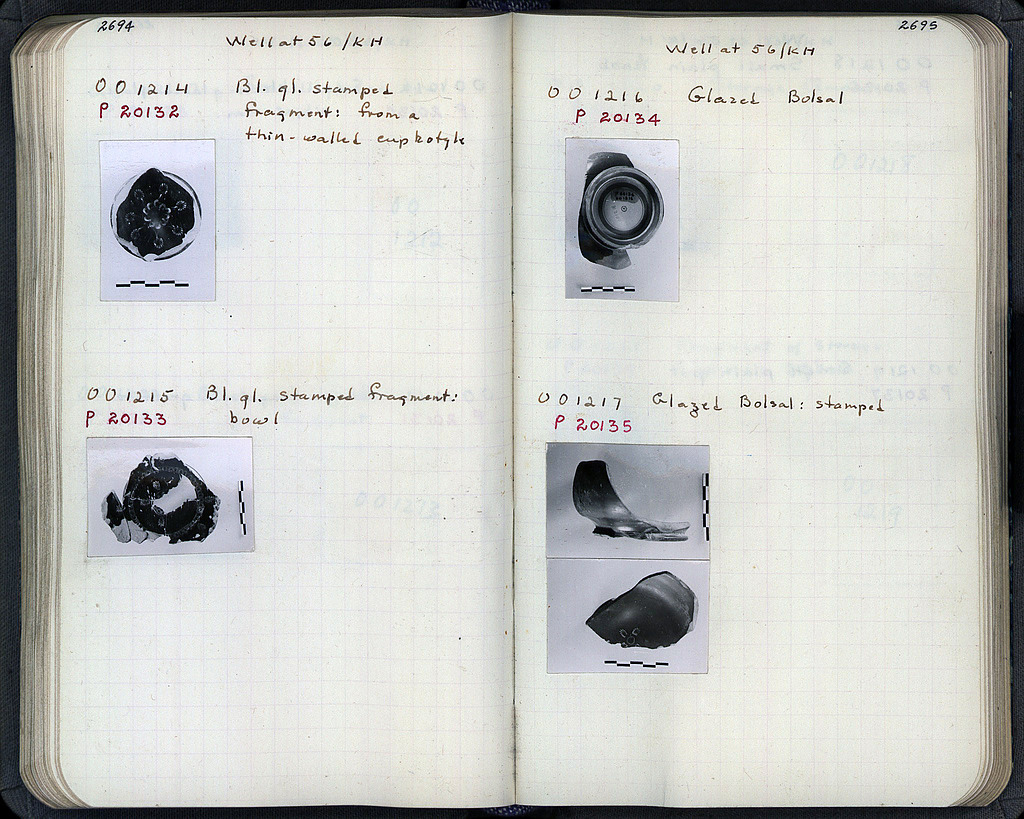 2694
Well at 56/KH
OO 1214 Bl. gl. stamped
P 20132 fragment: from a
thin-walled cup kotyle
OO 1215 Bl. gl. stamped fragment:
P 20133 bowl
2695
Well at 56/KH
OO 1216 Glazed Bolsal
P 20134
OO 1217 Glazed Bolsal: stamped
P 20135